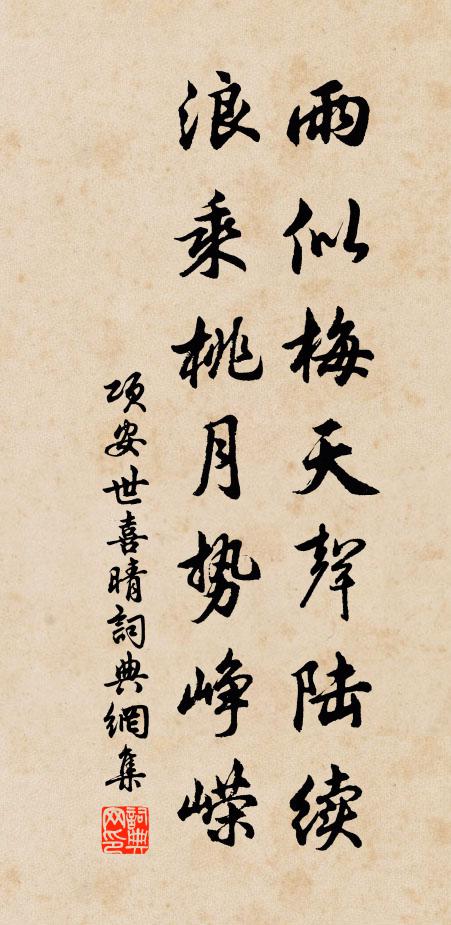 雨似梅天聲陆續
浪乘桃月势峥嶸
项安世喜晴詞典網集
詞典网印